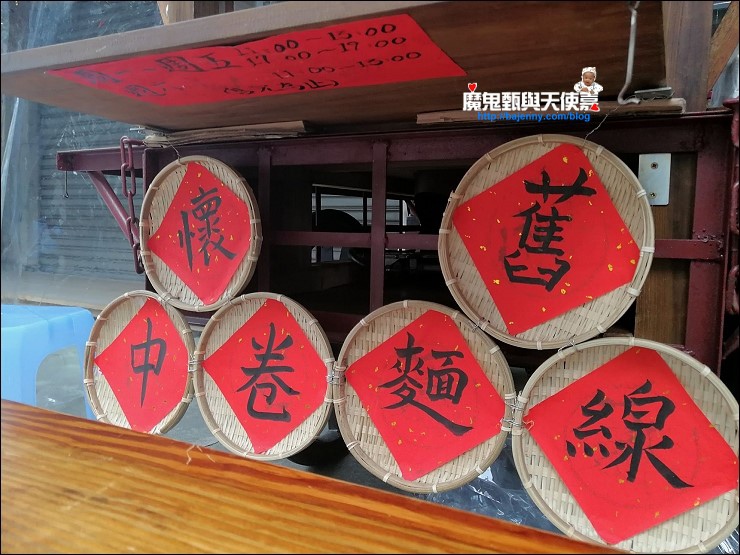 週五 11:00～15:00
17:00～17:00
11:00～15:00
魔鬼甄與天使嘉
http://bajenny.com/blog
懷舊
中卷麵線